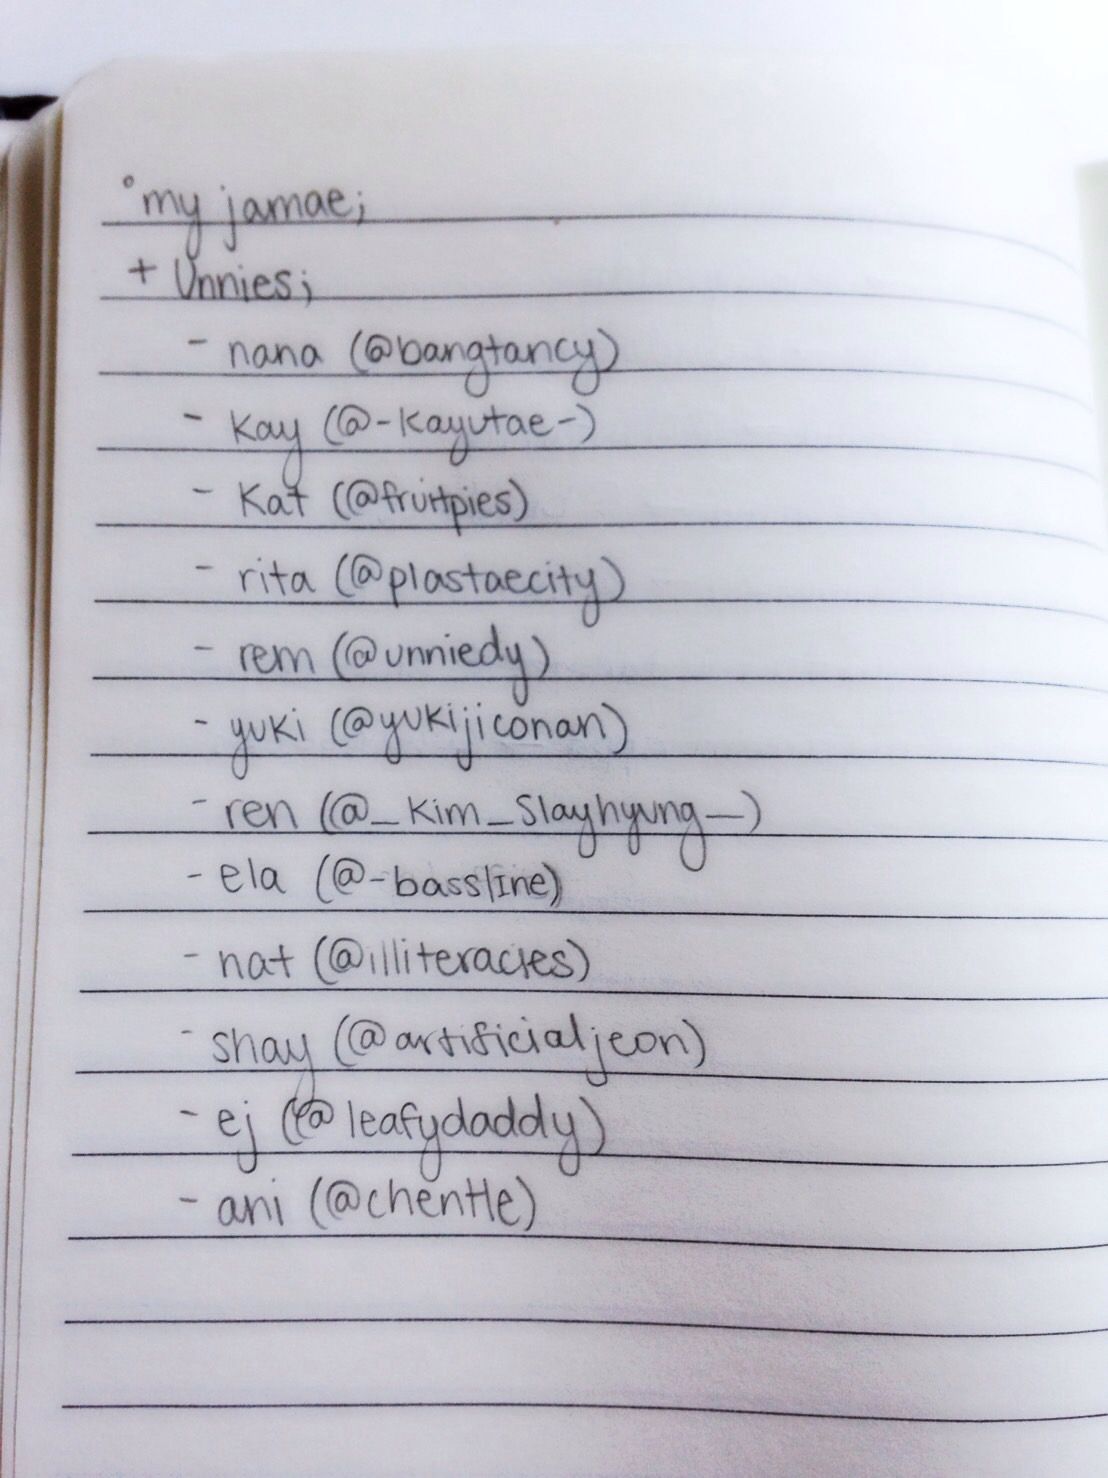 °my jamae;
+ Unnies;
- nana (@bangtancy)
- kay (@-kayutae-)
- Kat (@fruitpies)
- rita (@plastaecity)
- rem (@unniedy)
- yuki (@yukijiconan)
- ren (@_kim_Slayhyung_)
- ela (@-bassline)
- nat (@illiteracies)
- shay (@artificialjeon)
- ej (@leafydaddy)
- ani (@chentle)